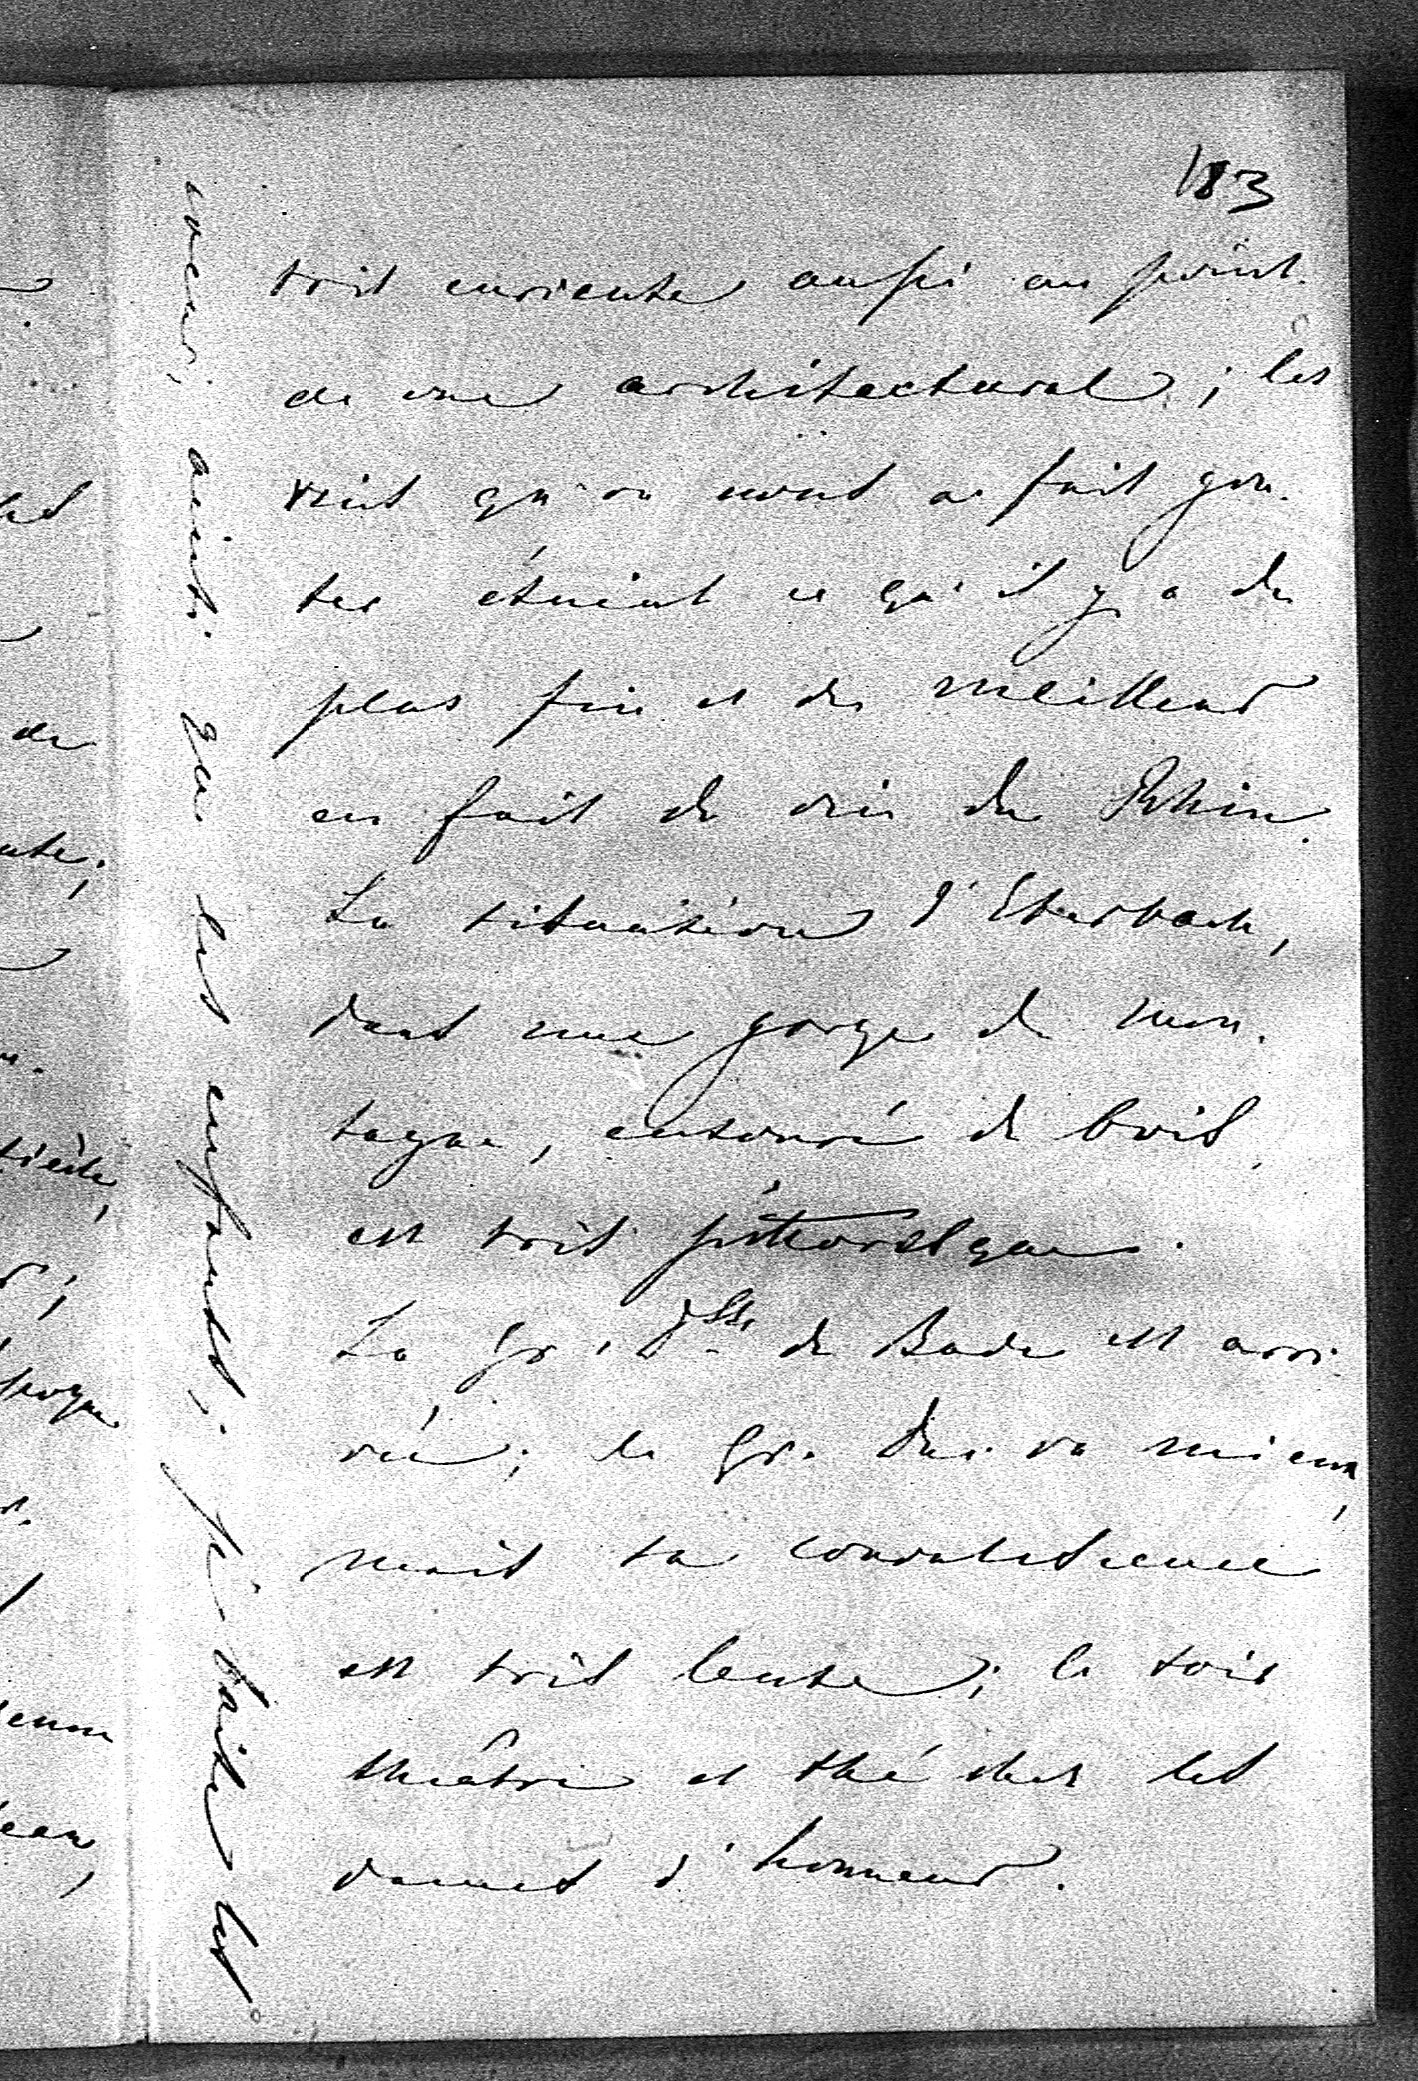 183
très curieuse aussi au point
de vue architectural ; les
vins qu'on nous a fait goû-
ter étaient ce qu'il y a de
plus fin et de meilleur
en fait de vin du Rhin.
La situation d'Eberbach,
dans une gorge de mon-
tagne, entouré de bois,
est très pittoresque.
La Gr. Dsse de Bade est arri-
vée ; le Gr. Duc va mieux,
mais sa convalescence
est très lente ; le soir
théâtre et thé chez les
dames d'honneur.
ainsi que les enfants ; les